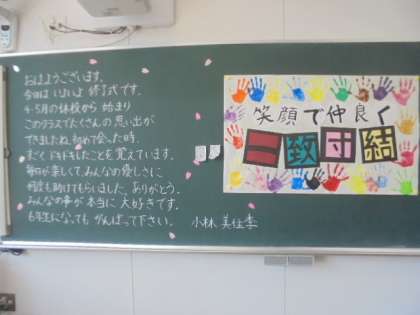 おはようございます。
今日は いよいよ 修了式です。
4・5月の休校から 始まり
このクラスでたくさんの 思い出が
できましたね。初めて会った時、
すごく ドキドキしたことを 覚えています。
毎日が楽しくて、みんなの優しさに
何度も助けてもらいました。ありがとう。
みんなの事が 本当に 大好きです。
6年生になっても がんばって下さい。
小林 美佳
笑顔で仲良く
一致団結